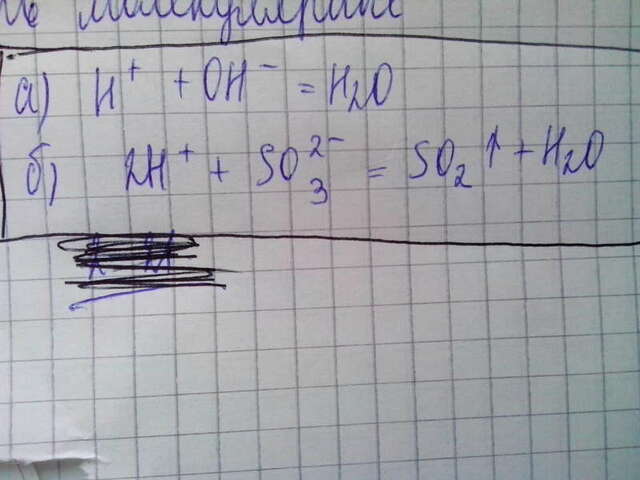 молекулярные
а) H⁺ + OH⁻ = H₂O
б) 2H⁺ + SO₃²⁻ = SO₂↑ + H₂O